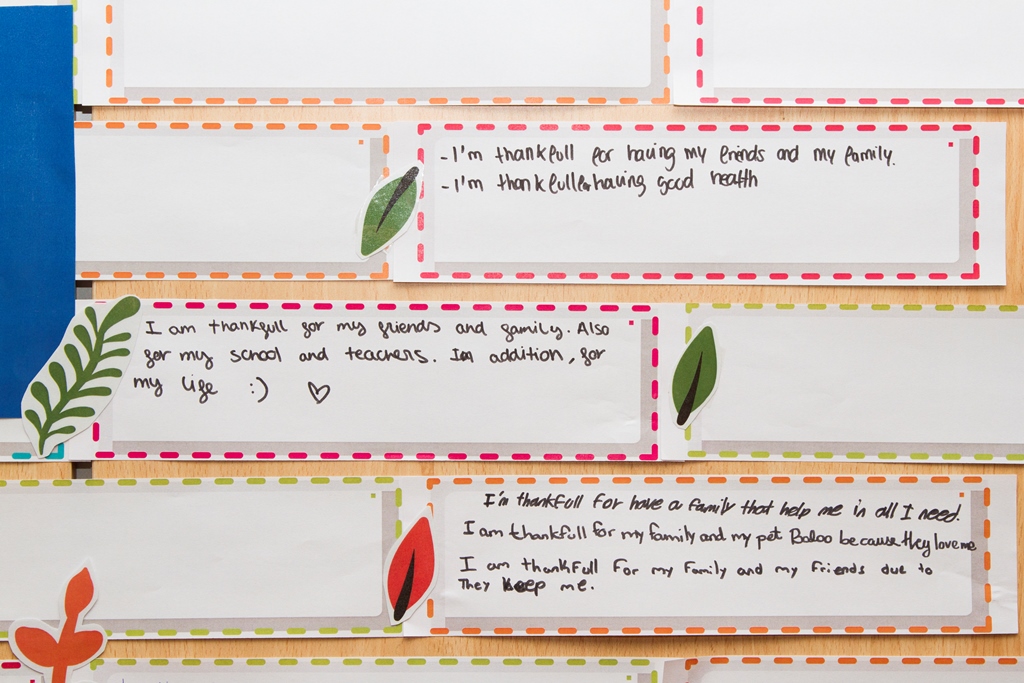 -I'm thankfull for having my friends and my family.
-I'm thankfull for having good health
I am thankfull for my friends and family. Also
for my school and teachers. In addition, for
my life :) ♡
I'm thankfull for have a family that help me in all I need.
I am thankfull for my family and my pet Baloo because they love me
I am thankfull for my family and my friends due to
They keep me.